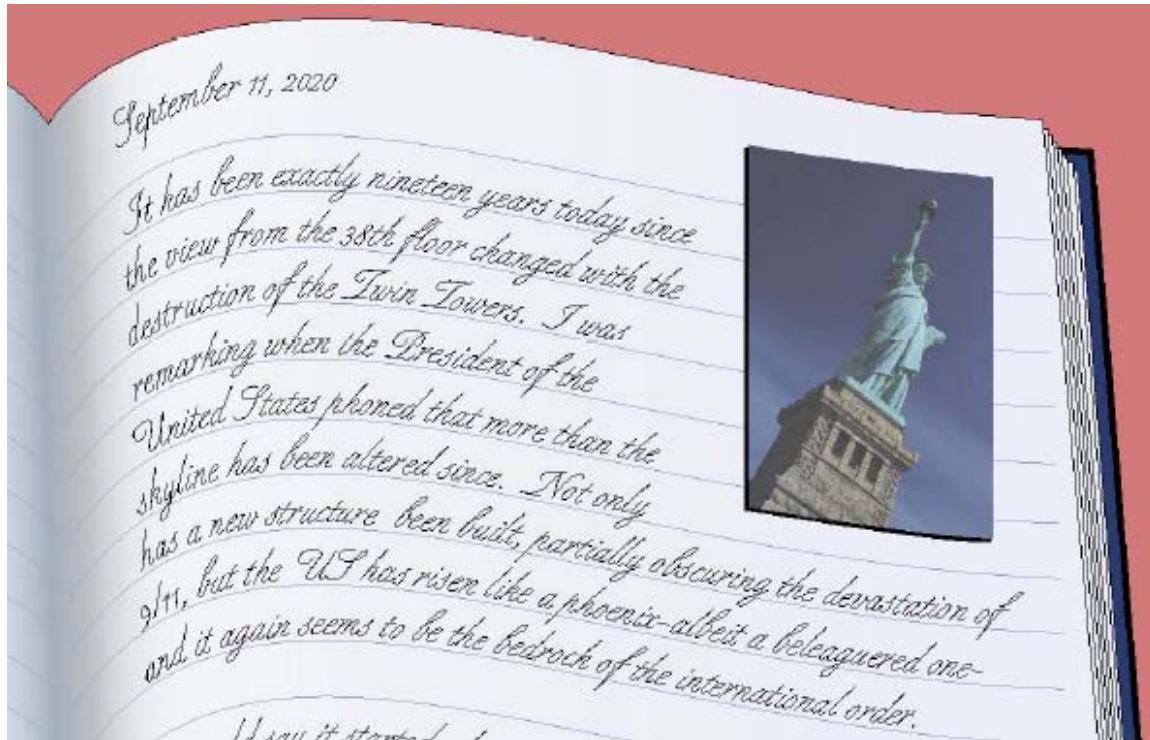 September 11, 2020
It has been exactly nineteen years today since
the view from the 38th floor changed with the
destruction of the Twin Towers. I was
remarking when the President of the
United States phoned that more than the
skyline has been altered since. Not only
has a new structure been built, partially obscuring the devastation of
9/11, but the US has risen like a phoenix-albeit a beleaguered one-
and it again seems to be the bedrock of the international order.
say it started